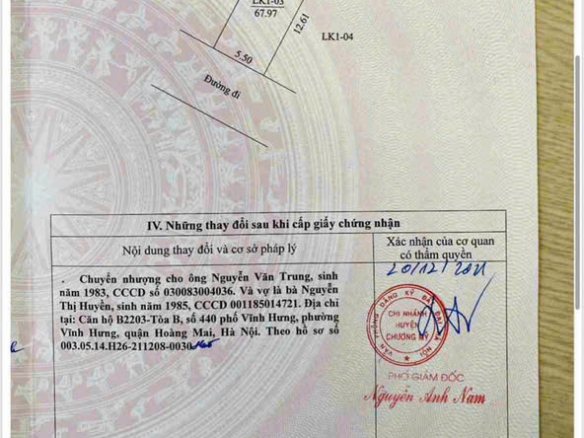 LK1-03
67.97
12.61
LK1-04
5.50
Đường đi
IV. Những thay đổi sau khi cấp giấy chứng nhận
Nội dung thay đổi và cơ sở pháp lý
Xác nhận của cơ quan
có thẩm quyền
. Chuyển nhượng cho ông Nguyễn Văn Trung, sinh
năm 1983, CCCD số 030083004036. Và vợ là bà Nguyễn
Thị Huyền, sinh năm 1985, CCCD 001185014721. Địa chỉ
tại: Căn hộ B2203-Tòa B, số 440 phố Vĩnh Hưng, phường
Vĩnh Hưng, quận Hoàng Mai, Hà Nội. Theo hồ sơ số
003.05.14.H26-211208-0030
20/12/2021
VĂN PHÒNG ĐĂNG KÝ ĐẤT ĐAI HÀ NỘI
CHI NHÁNH
HUYỆN
CHƯƠNG MỸ
PHÓ GIÁM ĐỐC
Nguyễn Anh Nam